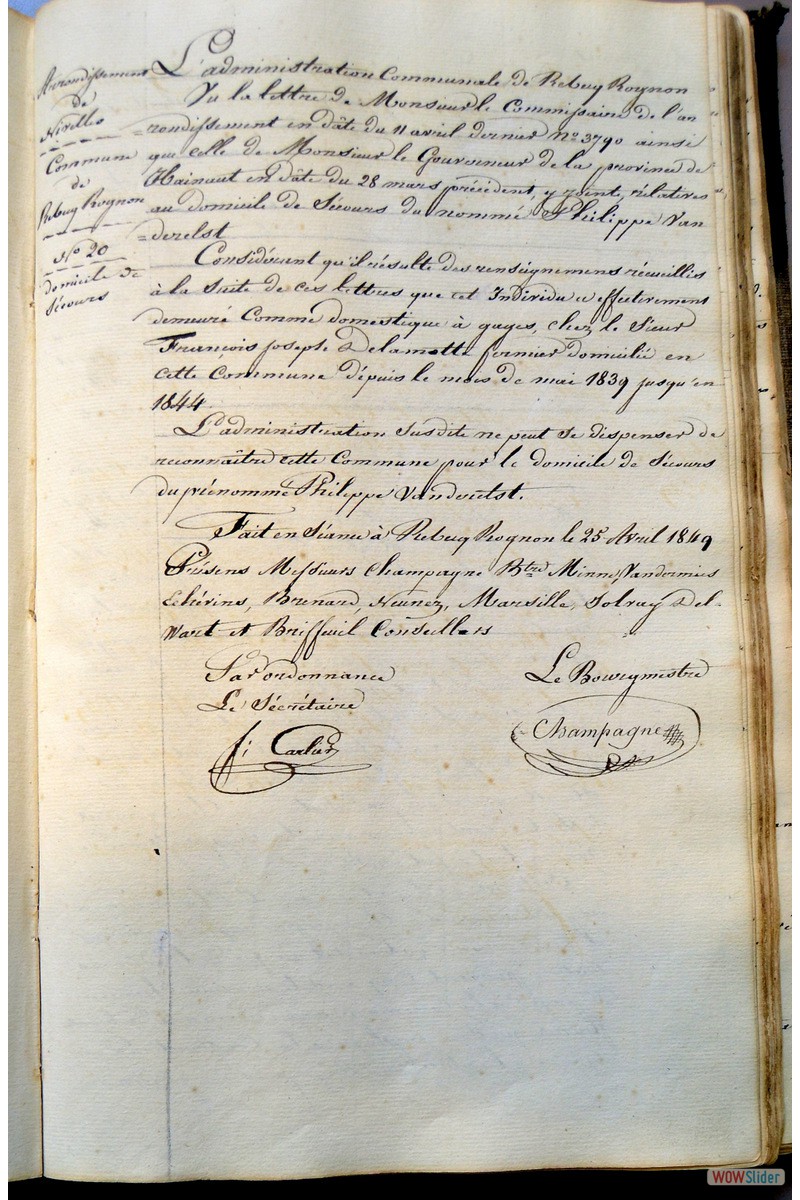 Arrondissement
de
Nivelles
Commune
de
Rebecq Rognon
N° 20
domicile de
Sécours
L'administration Communale de Rebecq Rognon
Vu la lettre de Monsieur le Commissaire de l'ar
rondissement en dâte du 11 avril dernier N° 3790 ainsi
que celle de Monsieur le Gouverneur de la province de
Hainaut en dâte du 28 mars précédent y joint, rélatives
au domicile de Sécours du nommé Philippe Van
derelst
Considérant qu'il résulte des renseignemens récueillis
à la Suite de ces lettres que cet Individu a effectivement
demeuré Comme domestique à gages, chez le Sieur
François joseph Delamotte fermier domicilié en
cette Commune dépuis le mois de mai 1839 jusqu'en
1844.
L'administration Susdite ne peut Se dispenser de
reconnaître cette Commune pour le domicile de Sécours
du prénommé Philippe Vanderelst.
Fait en Séance à Rebecq Rognon le 25 Avril 1849
Présens Messieurs Champagne Btre Minne, Vandormies
Echévins, Brenard, Neunez, Marsille, Solvay Del-
wart et Briffeuil Conseillers
Par ordonnance
Le Sécrétaire
Le Bourgmestre
Champagne
f: Carlier
WOWSlider